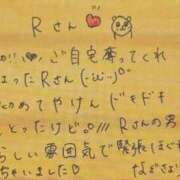 Rさん
ご自宅奪ってくれ
ったRさん
めてやけん ドキドキ
とったけど Rさんの男
らしい雰囲気で緊張ほぐれ
ちゃいました